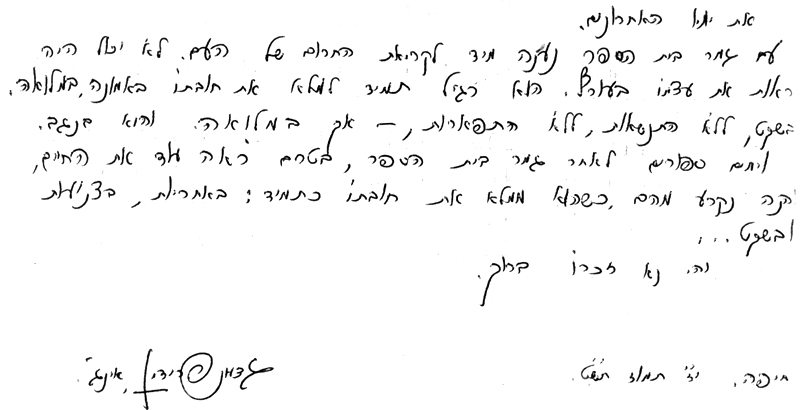 את ימיו האחרונים.
עם גמר בית הספר נענה מיד לקריאת החרום של העם. לא יכול היה
לראות את עצמו בעורף. הוא רגיל תמיד למלא את חובתו באמונה, במלואה,
בשקט, ללא התנשאות, ללא התפארות, – אך במלואה. והוא בנגב.
ימים ספורים לאחר גמר בית הספר, בטרם ראה עוד את החיים,
הנה נקרע מהם, כשהוא ממלא את חובתו כתמיד: באחריות, בצניעות
ובשקט...
יהי נא זכרו ברוך.
חיפה. י"ז תמוז תש"ט. אינג'